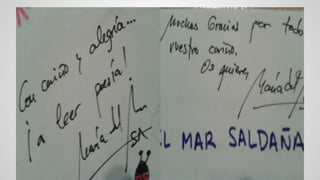 Con cariño y alegría...
¡a leer poesía!
María del Mar
SA
Muchas Gracias por todo
vuestro cariño.
Os quiere,
María del
EL MAR SALDAÑA